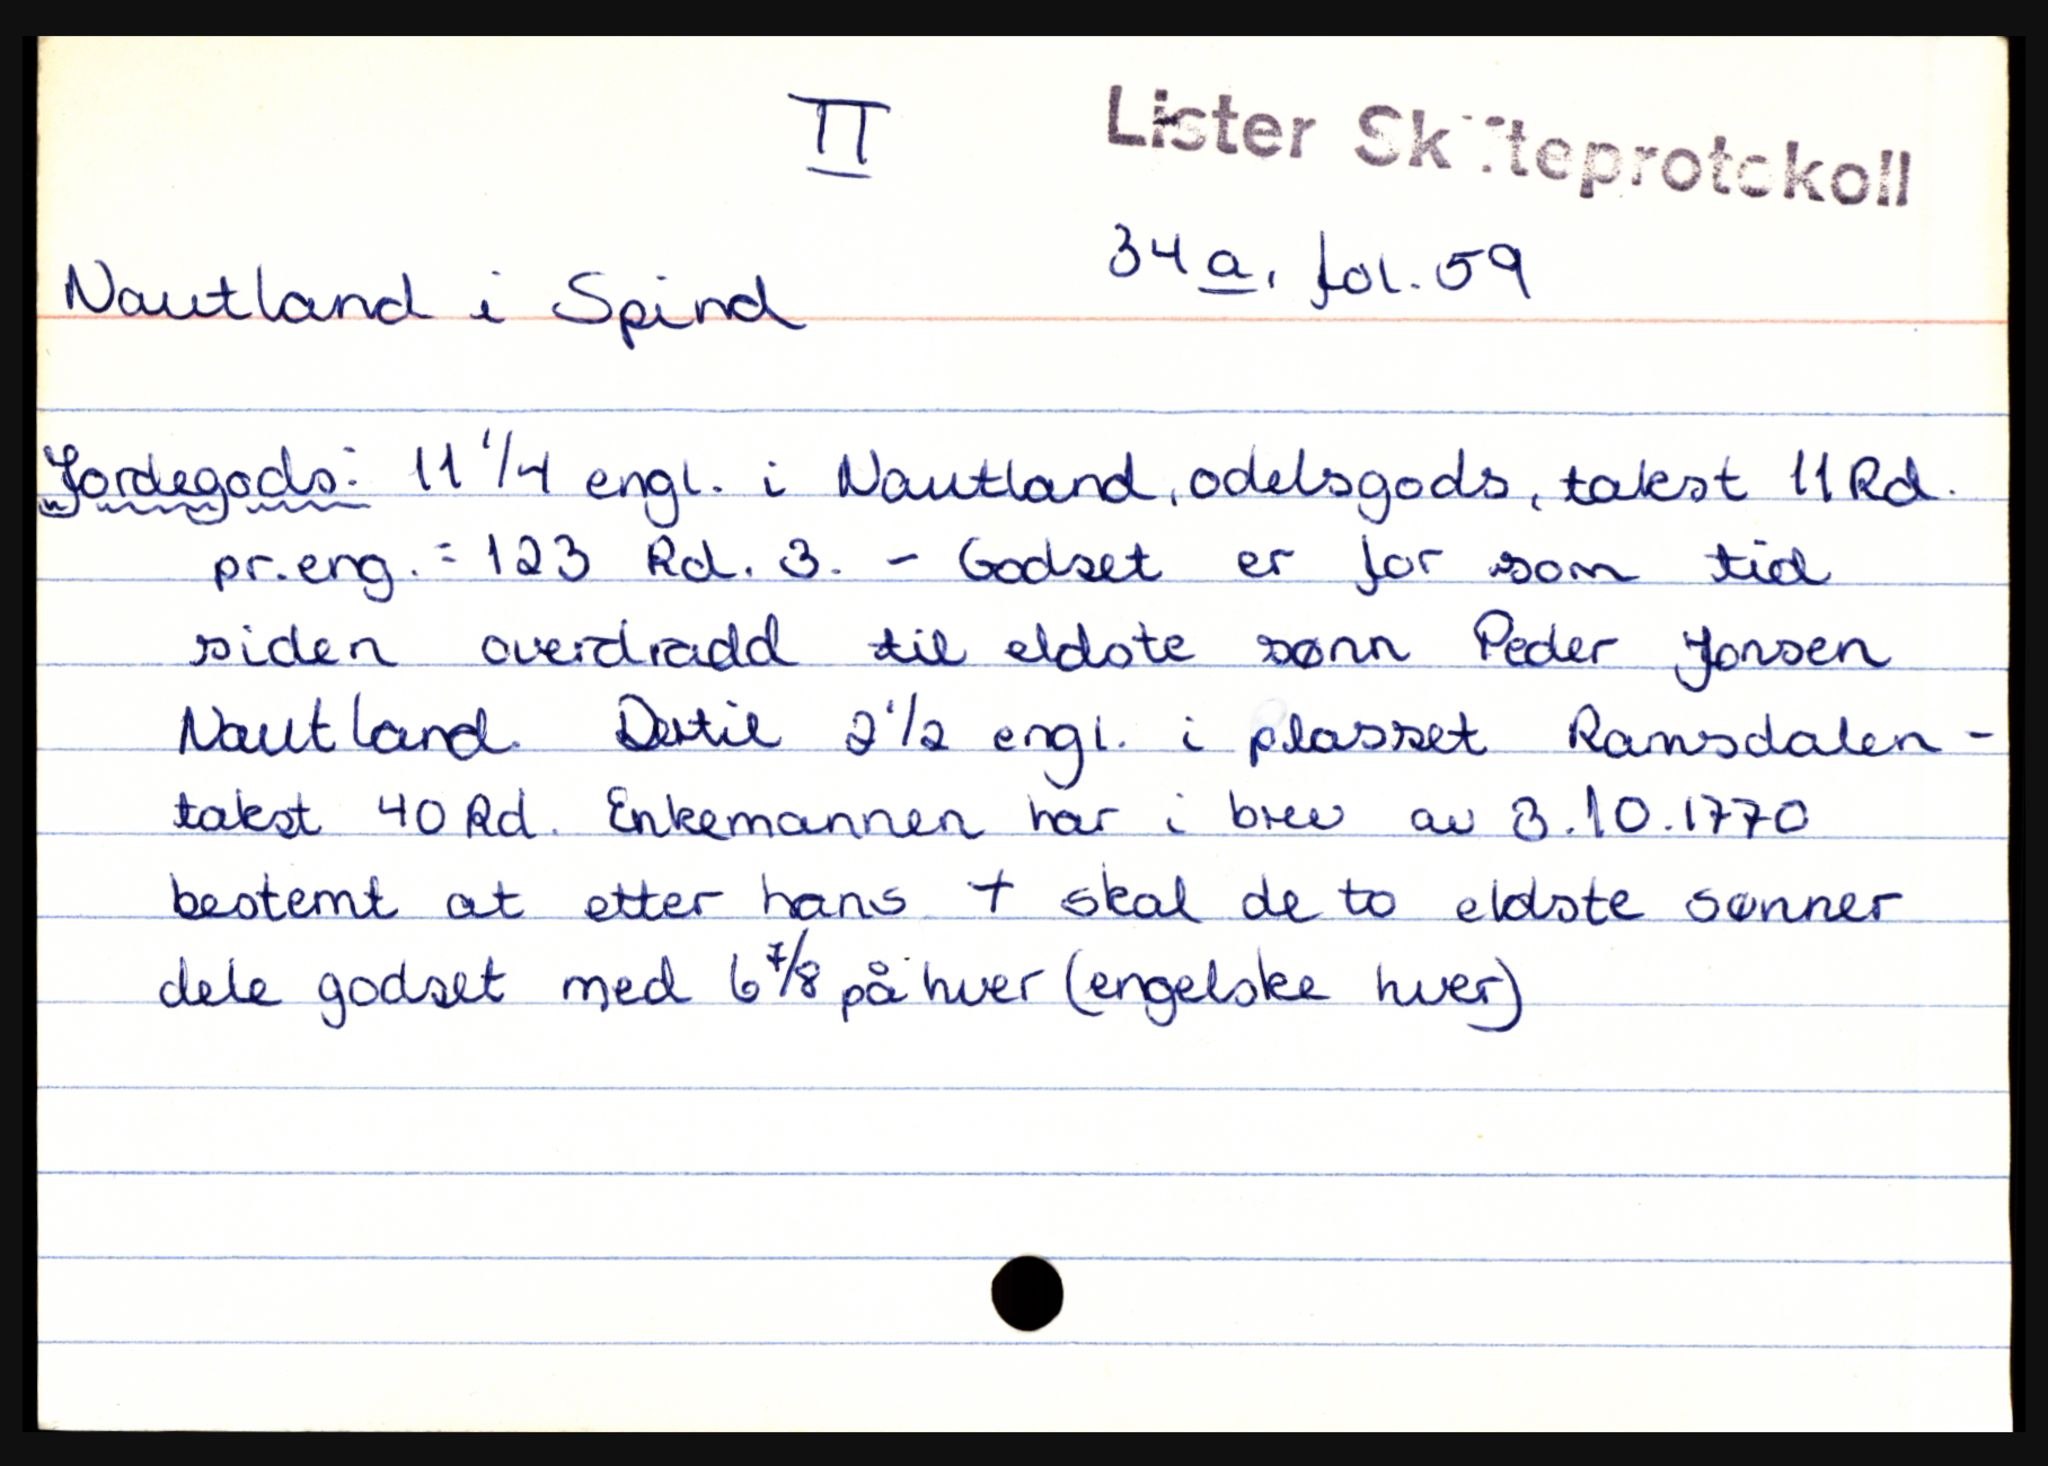 II
Lister Skifteprotokoll
34a, fol. 59
Nautland i Spind
Jordegods: 11 1/4 engl. i Nautland, odelsgods, takst 11 Rd.
pr. eng. = 123 Rd. 3. - Godset er for som tid
siden overdradd til eldste sønn Peder Jonsen
Nautland. Dertil 2 1/2 engl. i plasset Ramsdalen -
takst 40 Rd. Enkemannen har i brev av 3.10.1770
bestemt at etter hans + skal de to eldste sønner
dele godset med 6 7/8 på hver (engelske hver)